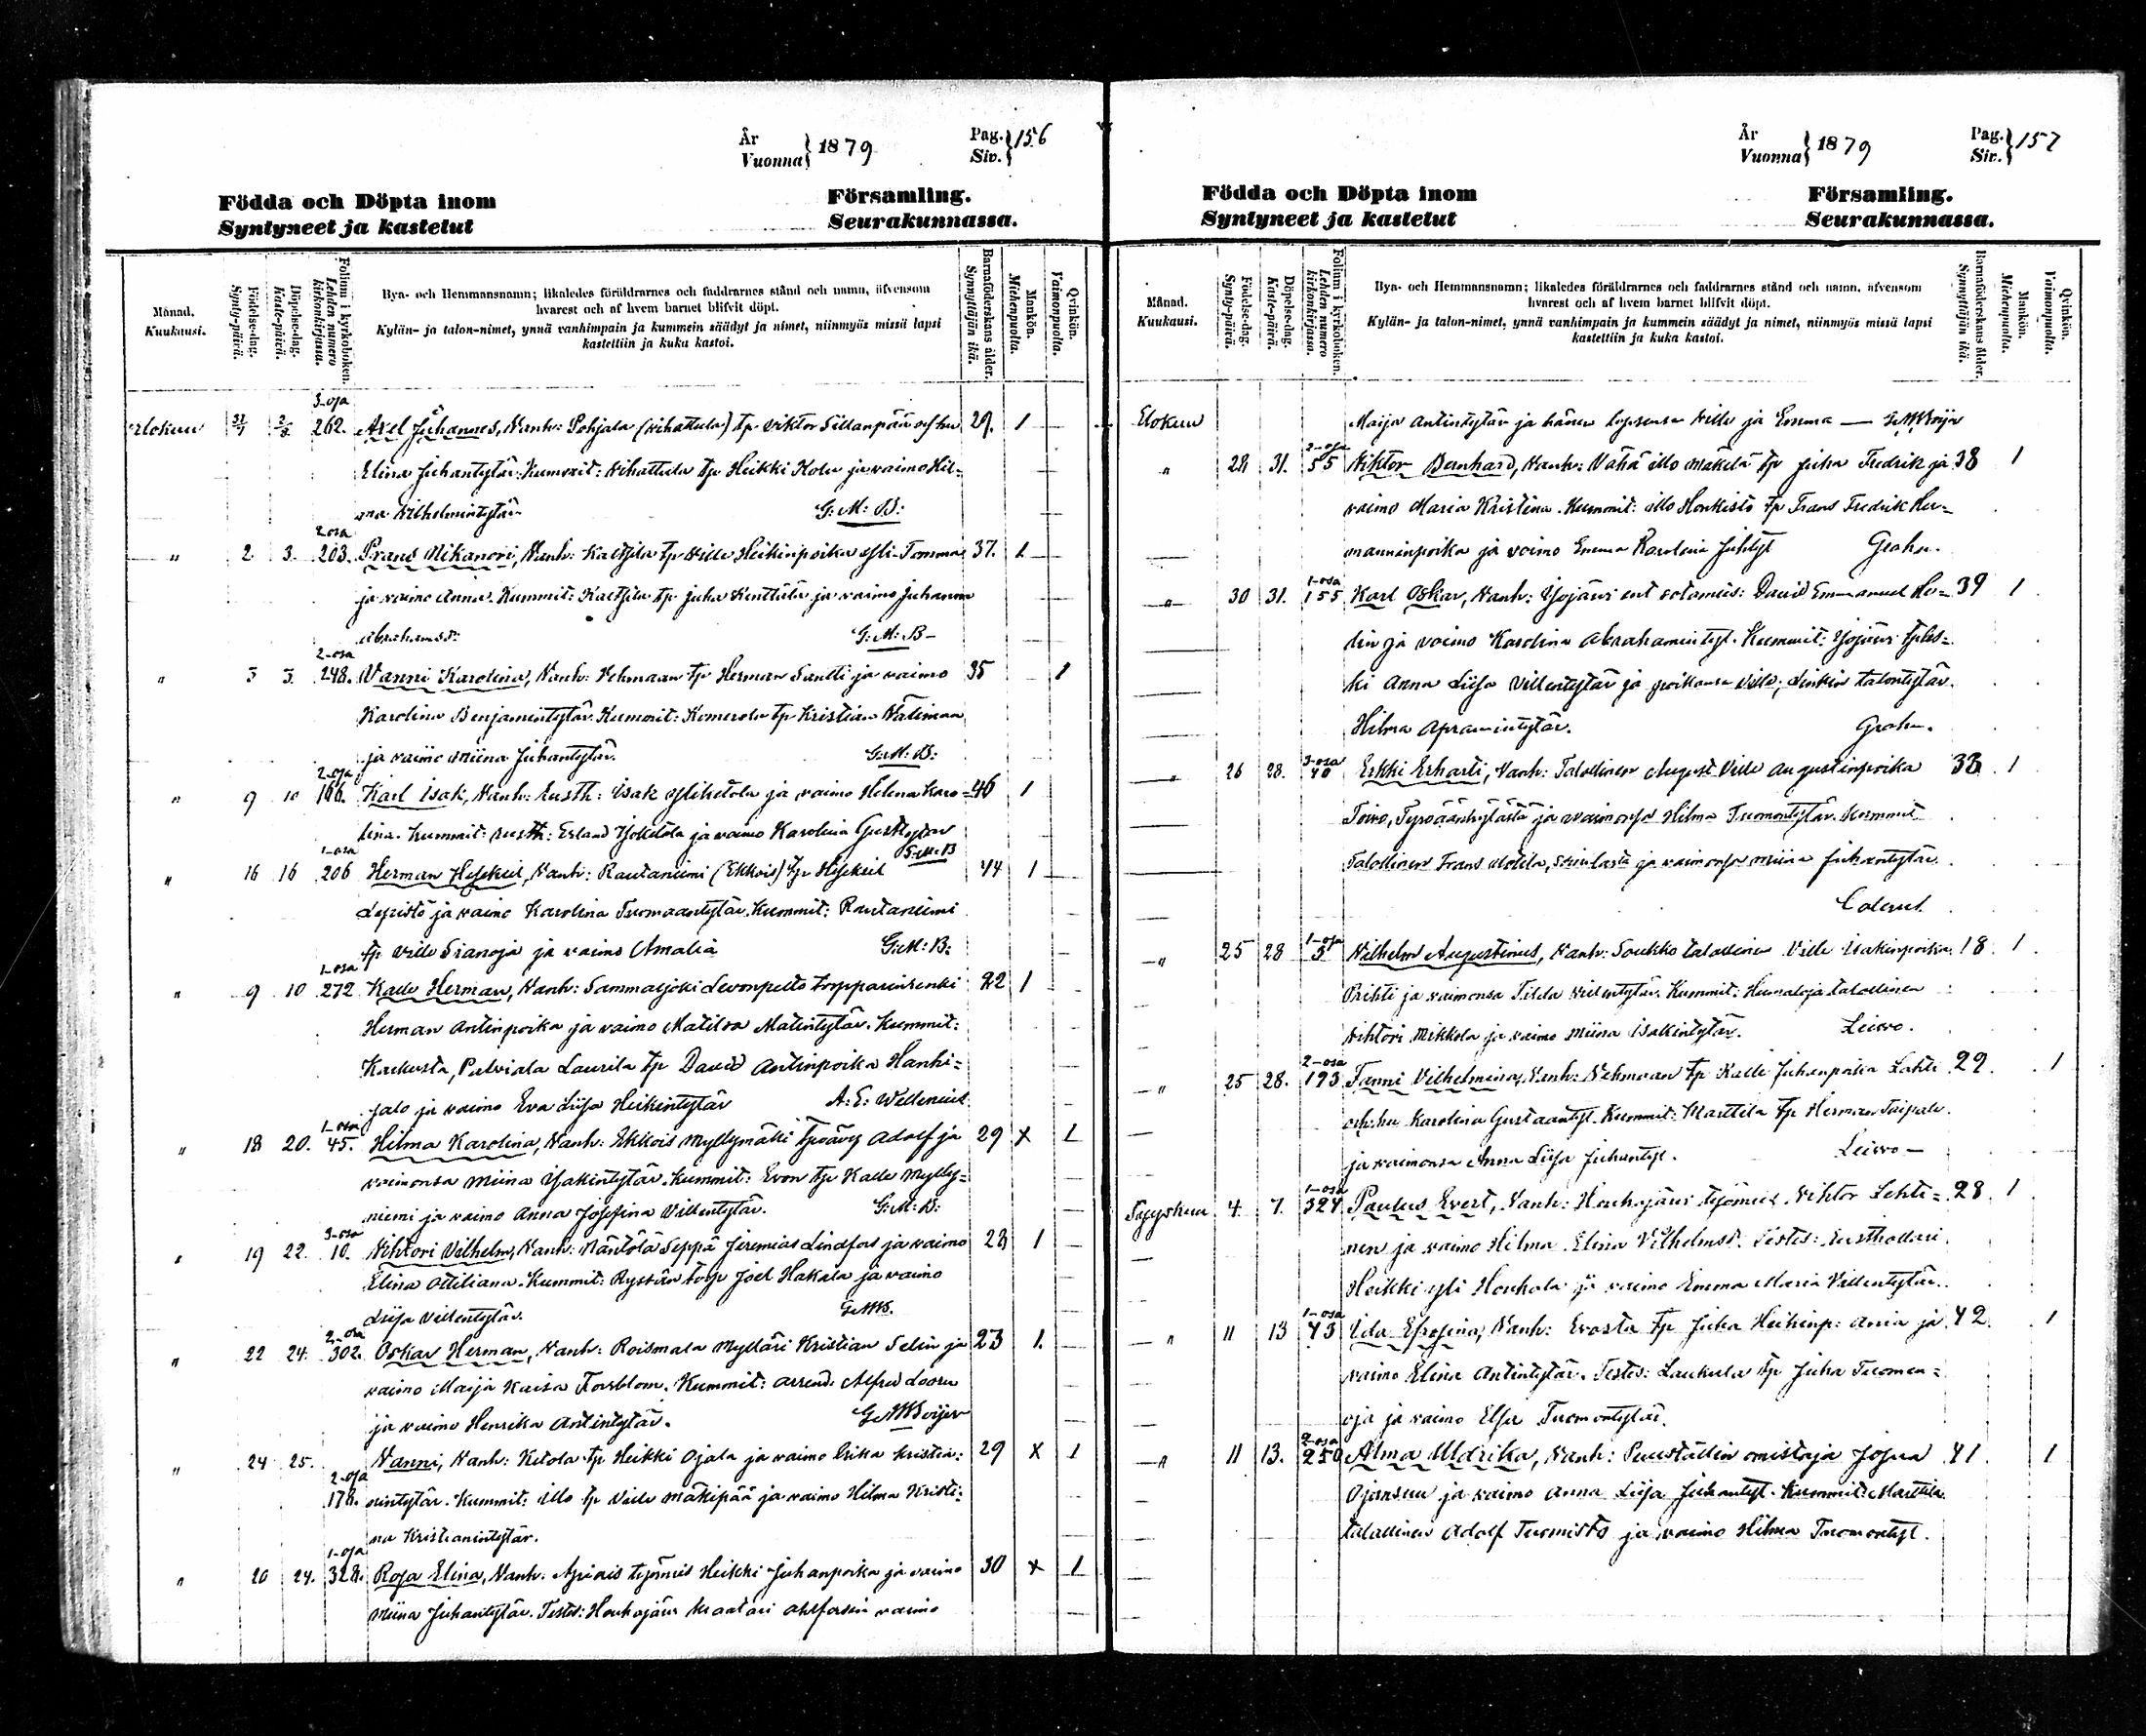 År
Vuonna} 1879
Pag.
Siv.} 156
Födda och Döpta inom Församling.
Syntyneet ja kastetut Seurakunnassa.
Månad.
Kuukausi.
Födelse-dag.
Synty-päivä.
Döpelse-dag.
Kaste-päivä.
Folium i kyrkoboken.
Lehden numero kirkonkirjassa.
Bya- och Hemmansnamn; likaledes föräldrarnes och faddrarnes stånd och namn, äfvensom
hvarest och af hvem barnet blifvit döpt.
Kylän- ja talon-nimet, ynnä vanhimpain ja kummein säädyt ja nimet, niinmyös missä lapsi
kastettiin ja kuka kastoi.
Barnaföderskans ålder.
Synnyttäjän ikä.
Mankön.
Miehenpuolta.
Qvinkön.
Vaimonpuolta.
3-osa
Elokuu 31/7 2/8 262. Axel Juhannes, Vanh: Pohjala (Vihattula) tp Viktor Sillanpää och hu 29. 1
Elina Juhantytär. Kummit: Vihattula tp Heikki Kolu ja vaimo Hil-
ma Vilhelmintytär G: M: B:
2 osa
" 2 3. 203. Frans Nikanori, Vanh: Kaltsila tp Ville Heikinpoika Yli-Tomma 37. 1
ja vaimo Anna. Kummit: Kaltsila tp Juha Kenttälä ja vaimo Juhanna
Abrahamsdr: G: M: B-
2-osa
" 3 3. 248. Vanni Karolina, Vanh: Vehmaan tp Herman Santti ja vaimo 35 1
Karolina Benjamintytär. Kummit: Komerola tp Kristian Nätiman
ja vaimo Miina Juhantytär. G: M: B:
2-osa
" 9 10 166. Karl Isak, Vanh: rusth: Isak Ylihetola ja vaimo Helena Karo- 46 1
lina. Kummit: rusth: Erland ja vaimo Karolina Gustfstytär
G: M: B
1-osa
" 16 16 206 Herman Hesekiel, Vanh: Rautaniemi (Ekkois) tp Hesekiel 44 1
Lepistö ja vaimo Karolina Tuomaantytär. Kummit: Rautaniemi
tp Ville Sianoja ja vaimo Amalia G: M: B:
1-osa
" 9 10 272 Kalle Herman, Vanh: Sammaljoki Levonpelto torpparinrenki 22 1
Herman Antinpoika ja vaimo Matilda Matintytär. Kummit:
Kaukusta, Palviala Laurila tp David Antinpoika Hanhi-
salo ja vaimo Eva Liisa Heikintytär A: E: Wellenius
1-osa
" 18 20. 45. Hilma Karolina, Vanh: Ekkois Myllymäki tpvävy Adolf ja 29 x 1
vaimonsa Miina Isakintytär. Kummit: Evon tp Kalle Mylly-
niemi ja vaimo Anna Josefina Villentytär. G: M: B:
3-osa
" 19 22. 10. Vihtori Vilhelm, Vanh: Mäntölä Seppä Jeremias Lindfors ja vaimo 23 1
Elina Ottiliana. Kummit: Ryssän torp Joel Hakala ja vaimo
Liisa Villentytär. G M B.
2-osa
" 22 24. 302. Oskar Herman, Vanh: Roismala Mylläri Kristian Selin ja 23 1.
vaimo Maija Kaisa Forsblom. Kummit: arrend. Alfred Looru
ja vaimo Henrika Antintytär. G M Boijer
" 24 25. Vanni, Vanh: Ketola tp Heikki Ojala ja vaimo Erika Kristia: 29 x 1
2-osa
178. nintytär. Kummit: Illo tp Ville Mäkipää ja vaimo Hilma Kristi:
na Kristianintytär.
1-osa
" 20 24. 328. Rosa Elina, Vanh. työmies Heikki Juhanpoika ja vaimo 30 x 1
Miina Juhantytär. Testes: Houhajärvi Kraatari vaimo
År
Vuonna} 1879
Pag.
Siv.} 157
Födda och Döpta inom Församling.
Syntyneet ja kastetut Seurakunnassa.
Månad.
Kuukausi.
Födelse-dag.
Synty-päivä.
Döpelse-dag.
Kaste-päivä.
Folium i kyrkoboken.
Lehden numero kirkonkirjassa.
Bya- och Hemmansnamn; likaledes föräldrarnes och faddrarnes stånd och namn, äfvensom
hvarest och af hvem barnet blifvit döpt.
Kylän- ja talon-nimet, ynnä vanhimpain ja kummein säädyt ja nimet, niinmyös missä lapsi
kastettiin ja kuka kastoi.
Barnaföderskans ålder.
Synnyttäjän ikä.
Mankön.
Miehenpuolta.
Qvinkön.
Vaimonpuolta.
Elokuu Maija Antintytär ja hänen lapsensa Ville ja Emma — G M Boijer
2-osa
" 28 31. 55 Viktor Bernhard, Vanh: Vähä Illo Mäkelä tp Juha Fredrik ja 38 1
vaimo Maria Kristina. Kummit: Illo Honkisto tp Frans Fredrik Her-
manninpoika ja vaimo Emma Karolina Juhtyt Grahn.
1-osa
" 30 31. 155 Karl Oskar, Vanh: Yojärvi ent sotamies: David Emmanuel He- 39 1
lin ja vaimo Karolina Abrahamintyt. Kummit: Yojärvi tples-
ki Anna Liisa Villentytär ja poikansa Ville; Linkin talontytär
Hilma Apramintytär. Grahn.
3-osa
" 26 28. 40 Erkki Erharti, Vanh: Talollinen August Ville Augustinpoika 33 1
Toivo, Tyrväänkylästä ja vaimonsa Hilma Tuomontytär. Kummit
Talollinen Frans Uotila, ja vaimonsa Miina Juhantytär.
1-osa
" 25 28 5 Vilhelm Augustinus, Vanh: Soukko talollinen Ville Isakinpoika 18. 1
Prihti ja vaimonsa Tilda Villentytär. Kummit: Humaloja talollinen
Vihtori Mikkola ja vaimo Miina Isakintytär. Leivo.
2-osa
" 25 28. 193 Fanni Vilhelmina, Vanh: Vehmaan tp Kalle Juhanpoika Lahti 29. 1
och hu Karolina Gustaantyt. Kummit: Marttila tp Herman Taipale
ja vaimonsa Anna Liisa Juhantyt. Leivo —
1-osa
Syyskuu 4 7. 324 Paulus Evert, Vanh: Houhajärvi työmies Vihtor Lehti- 28. 1
nen ja vaimo Hilma Elina Vilhelmsd. Testes: rusthollari
Heikki Yli Houhala ja vaimo Emma Maria Villentytär.
1-osa
" 11 13 43 Ida Efrosina, Vanh: Evosta tp Juha Heikinp: Ania ja 42. 1
vaimo Elina Antintytär. Testes: Laukula tp Juha Tuomen-
oja ja vaimo Elsa Tuomontytär.
2-osa
" 11 13. 250 Alma Uldrika, Vanh: Puustallin omistaja Josua 41 1
Ojansuu ja vaimo Anna Liisa Juhantyt. Kummit: Marttila
talollinen Adolf Tuomisto ja vaimo Hilma Tuomontyt.